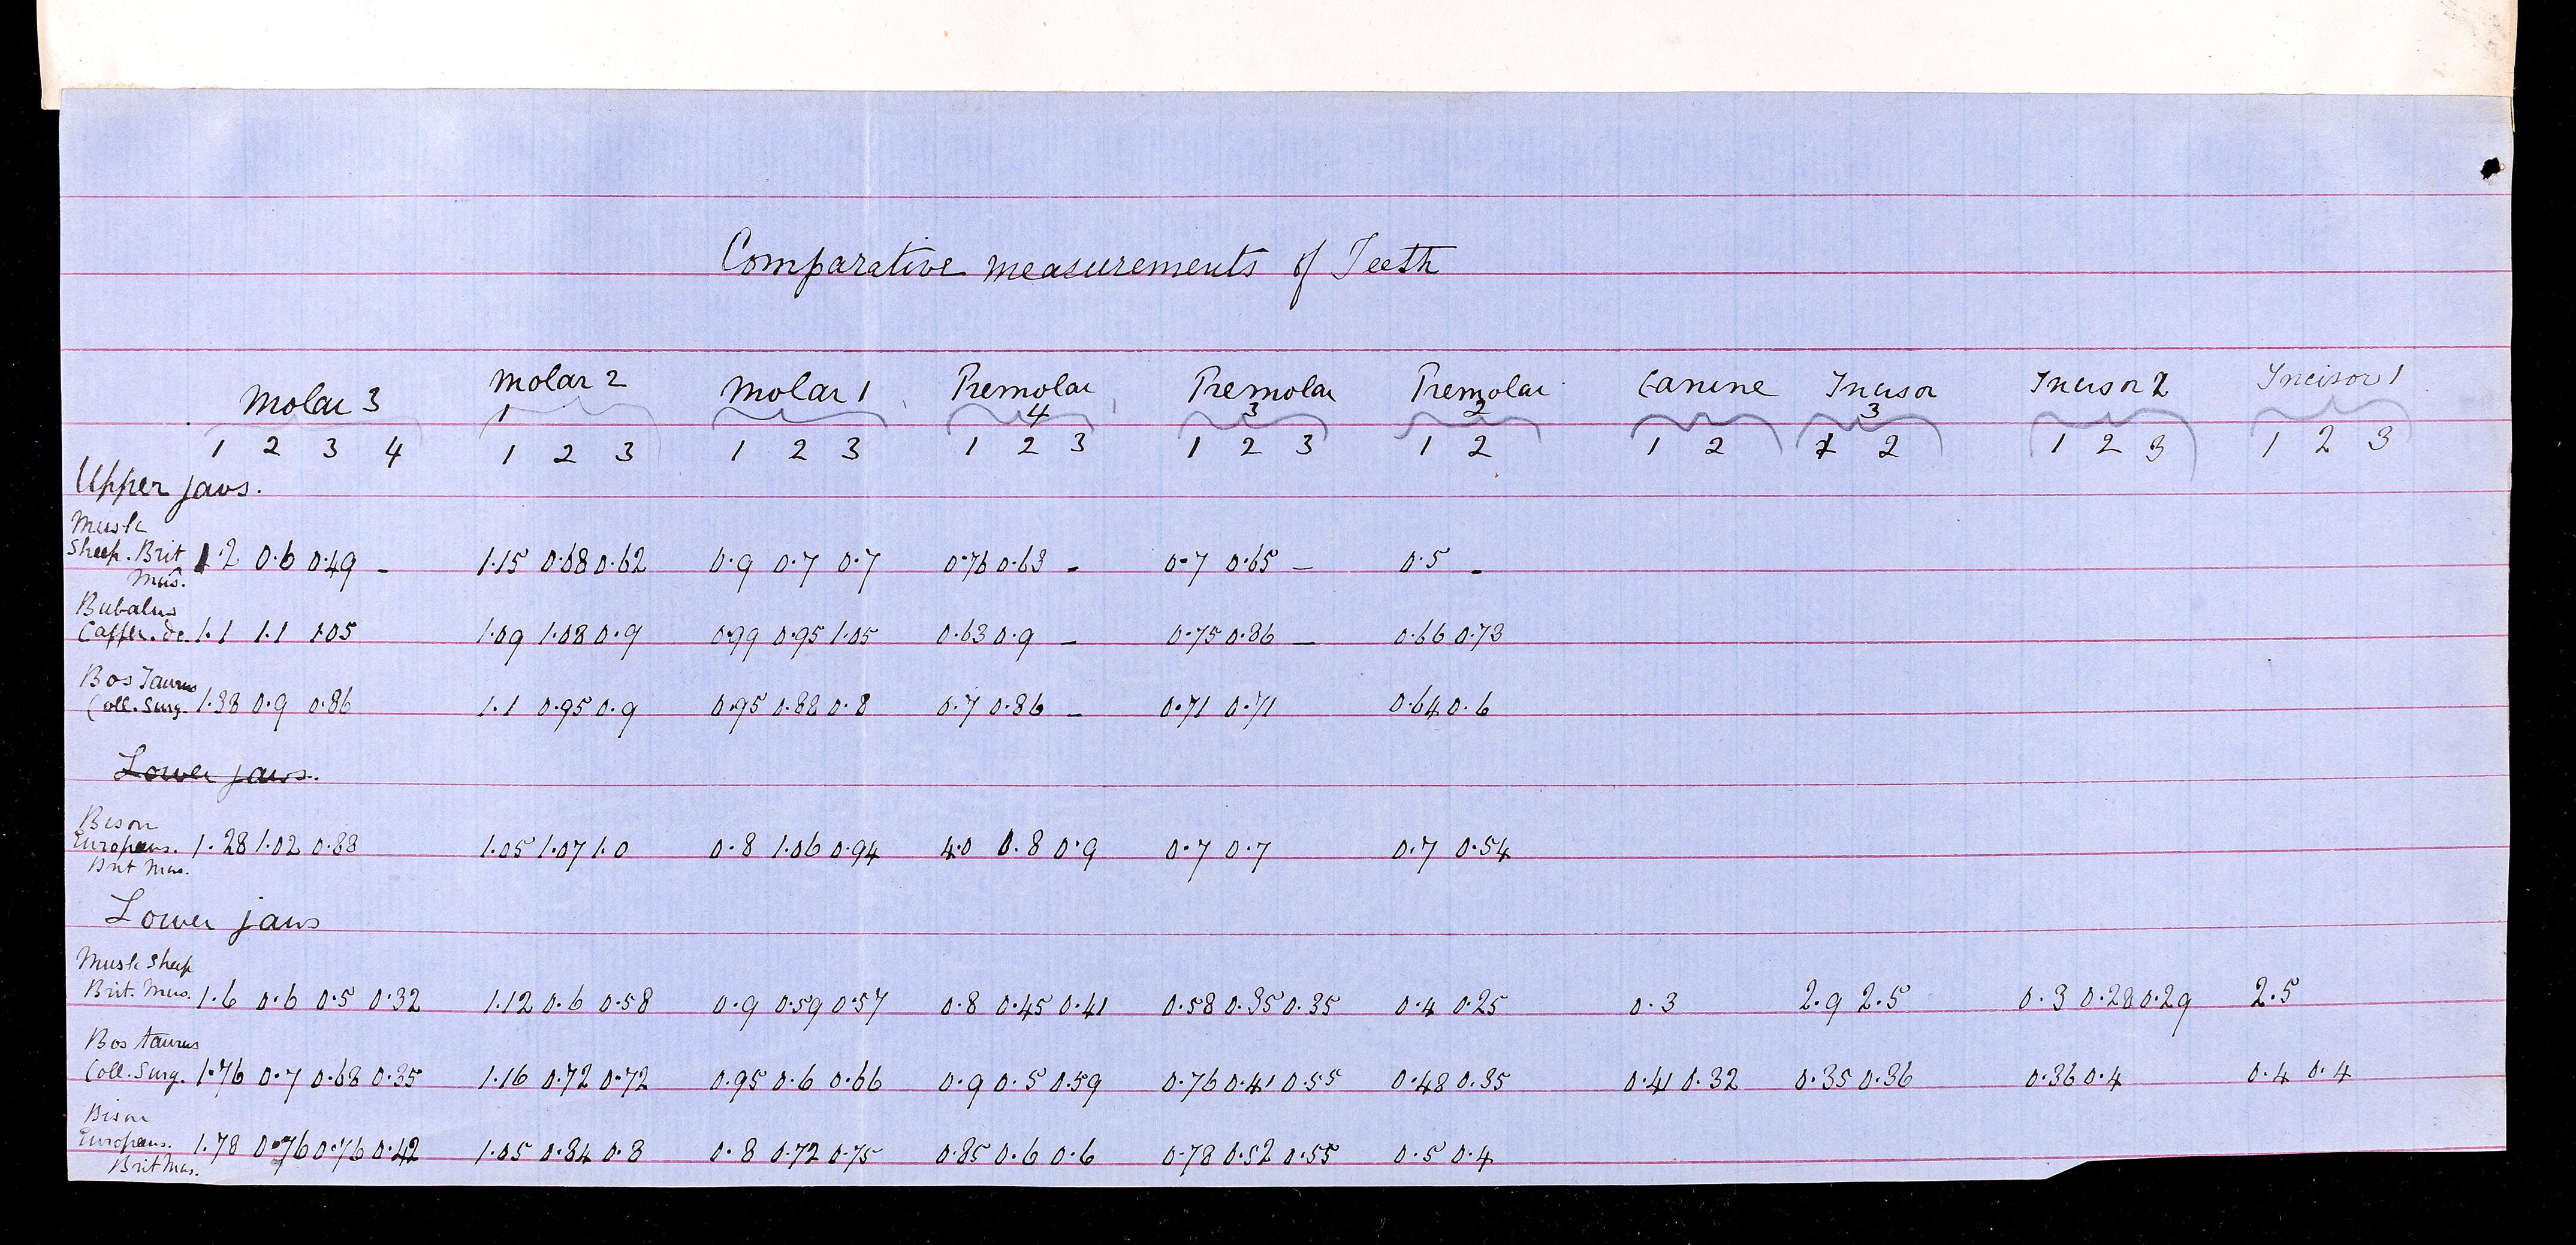 Comparative measurements of Teeth
Molar 3 Molar 2 Molar 1 Premolar 4 Premolar 3 Premolar 2 Canine Incisor 3 Incisor 2 Incisor 1
1
1 2 3 4 1 2 3 1 2 3 1 2 3 1 2 3 1 2 1 2 1 2 1 2 3 1 2 3
Upper jaws.
Musk
Sheep. Brit 1.2 0.6 0.49 - 1.15 0.68 0.62 0.9 0.7 0.7 0.76 0.63 - 0.7 0.65 - 0.5 -
Mus.
Bubalus
Caffer. do. 1.1 1.1 1.05 1.09 1.08 0.9 0.99 0.95 1.05 0.63 0.9 - 0.75 0.86 - 0.66 0.73
Bos Taurus
Coll. Surg. 1.38 0.9 0.86 1.1 0.95 0.9 0.95 0.88 0.8 0.7 0.86 - 0.71 0.71 0.64 0.6
Lower jaws.
Bison
Europæus. 1.28 1.02 0.88 1.05 1.07 1.0 0.8 1.06 0.94 4.0 0.8 0.9 0.7 0.7 0.7 0.54
Brit Mus.
Lower jaws
Musk Sheep
Brit. Mus. 1.6 0.6 0.5 0.32 1.12 0.6 0.58 0.9 0.59 0.57 0.8 0.45 0.41 0.58 0.35 0.35 0.4 0.25 0.3 2.9 2.5 0.3 0.28 0.29 2.5
Bos taurus
Coll. Surg. 1.76 0.7 0.68 0.35 1.16 0.72 0.72 0.95 0.6 0.66 0.9 0.5 0.59 0.76 0.41 0.55 0.48 0.35 0.41 0.32 0.35 0.36 0.36 0.4 0.4 0.4
Bison
Europæus. 1.78 0.76 0.76 0.42 1.05 0.84 0.8 0.8 0.72 0.75 0.85 0.6 0.6 0.78 0.52 0.55 0.5 0.4
Brit Mus.